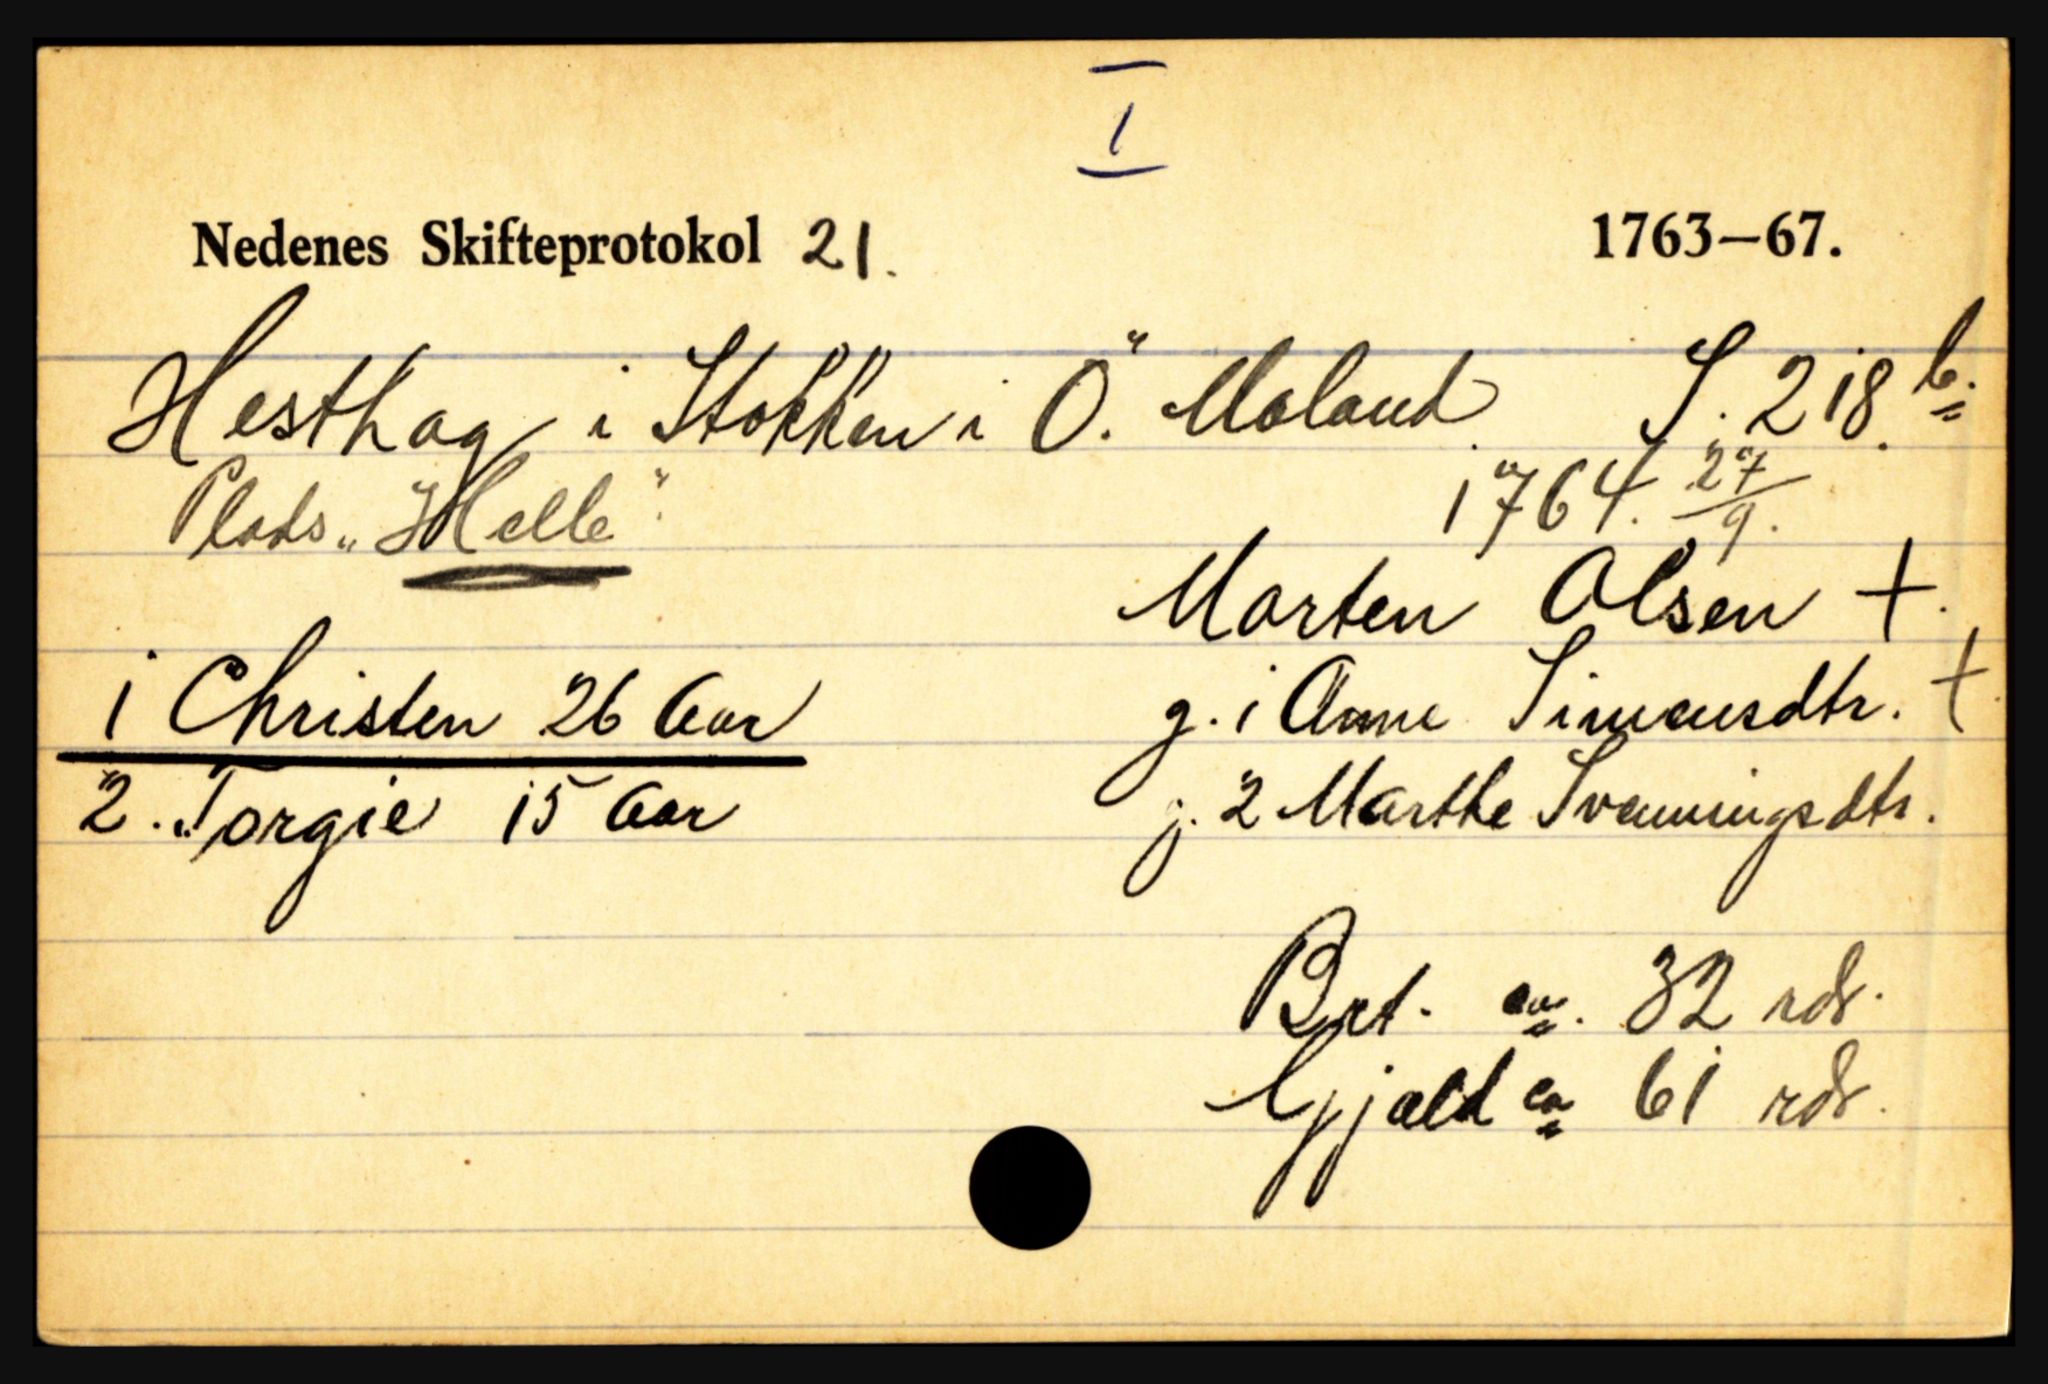 I
Nedenes Skifteprotokol 21. 1763–67.
Hesthag i Stokken i Ö. Moland. S. 218.b.
Plads „Helle". 1764. 27/9.
Morten Olsen +.
1 Christen 26 Aar g. 1 Anne Simensdtr. +
2. Torgie 15 Aar g. 2 Marthe Svenningsdtr.
Brt. ca. 32 rdr.
Gjæld ca 61 rdr.